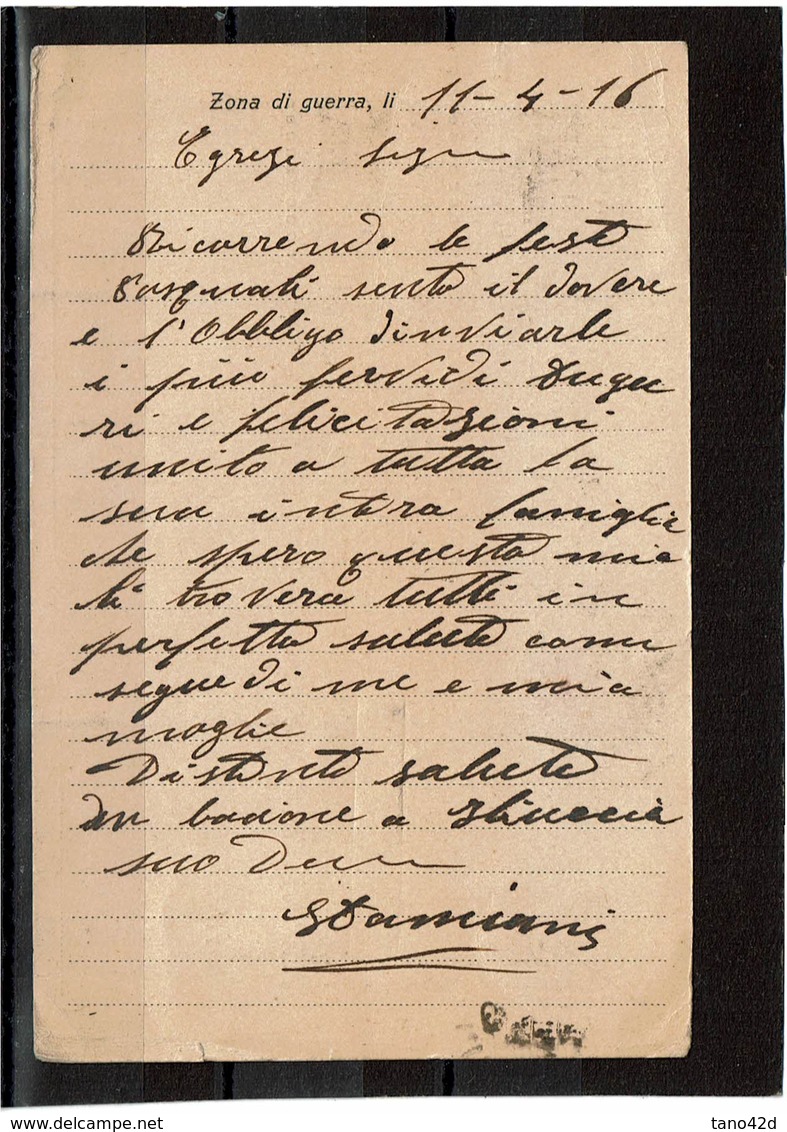 Zona di guerra, li 11-4-16
Egregi
Ricorrendo le feste
Pasquali sento il dovere
e l'Obbligo d'inviarle
i più fervidi Augu
ri e felicitazioni
unito a tutta la
sua intera famiglia
che spero questa mia
li troverà tutti in
perfetta salute come
segue di me e mia
moglie
Distinti saluti
un bacione a
suo
GDamiani
tano42d